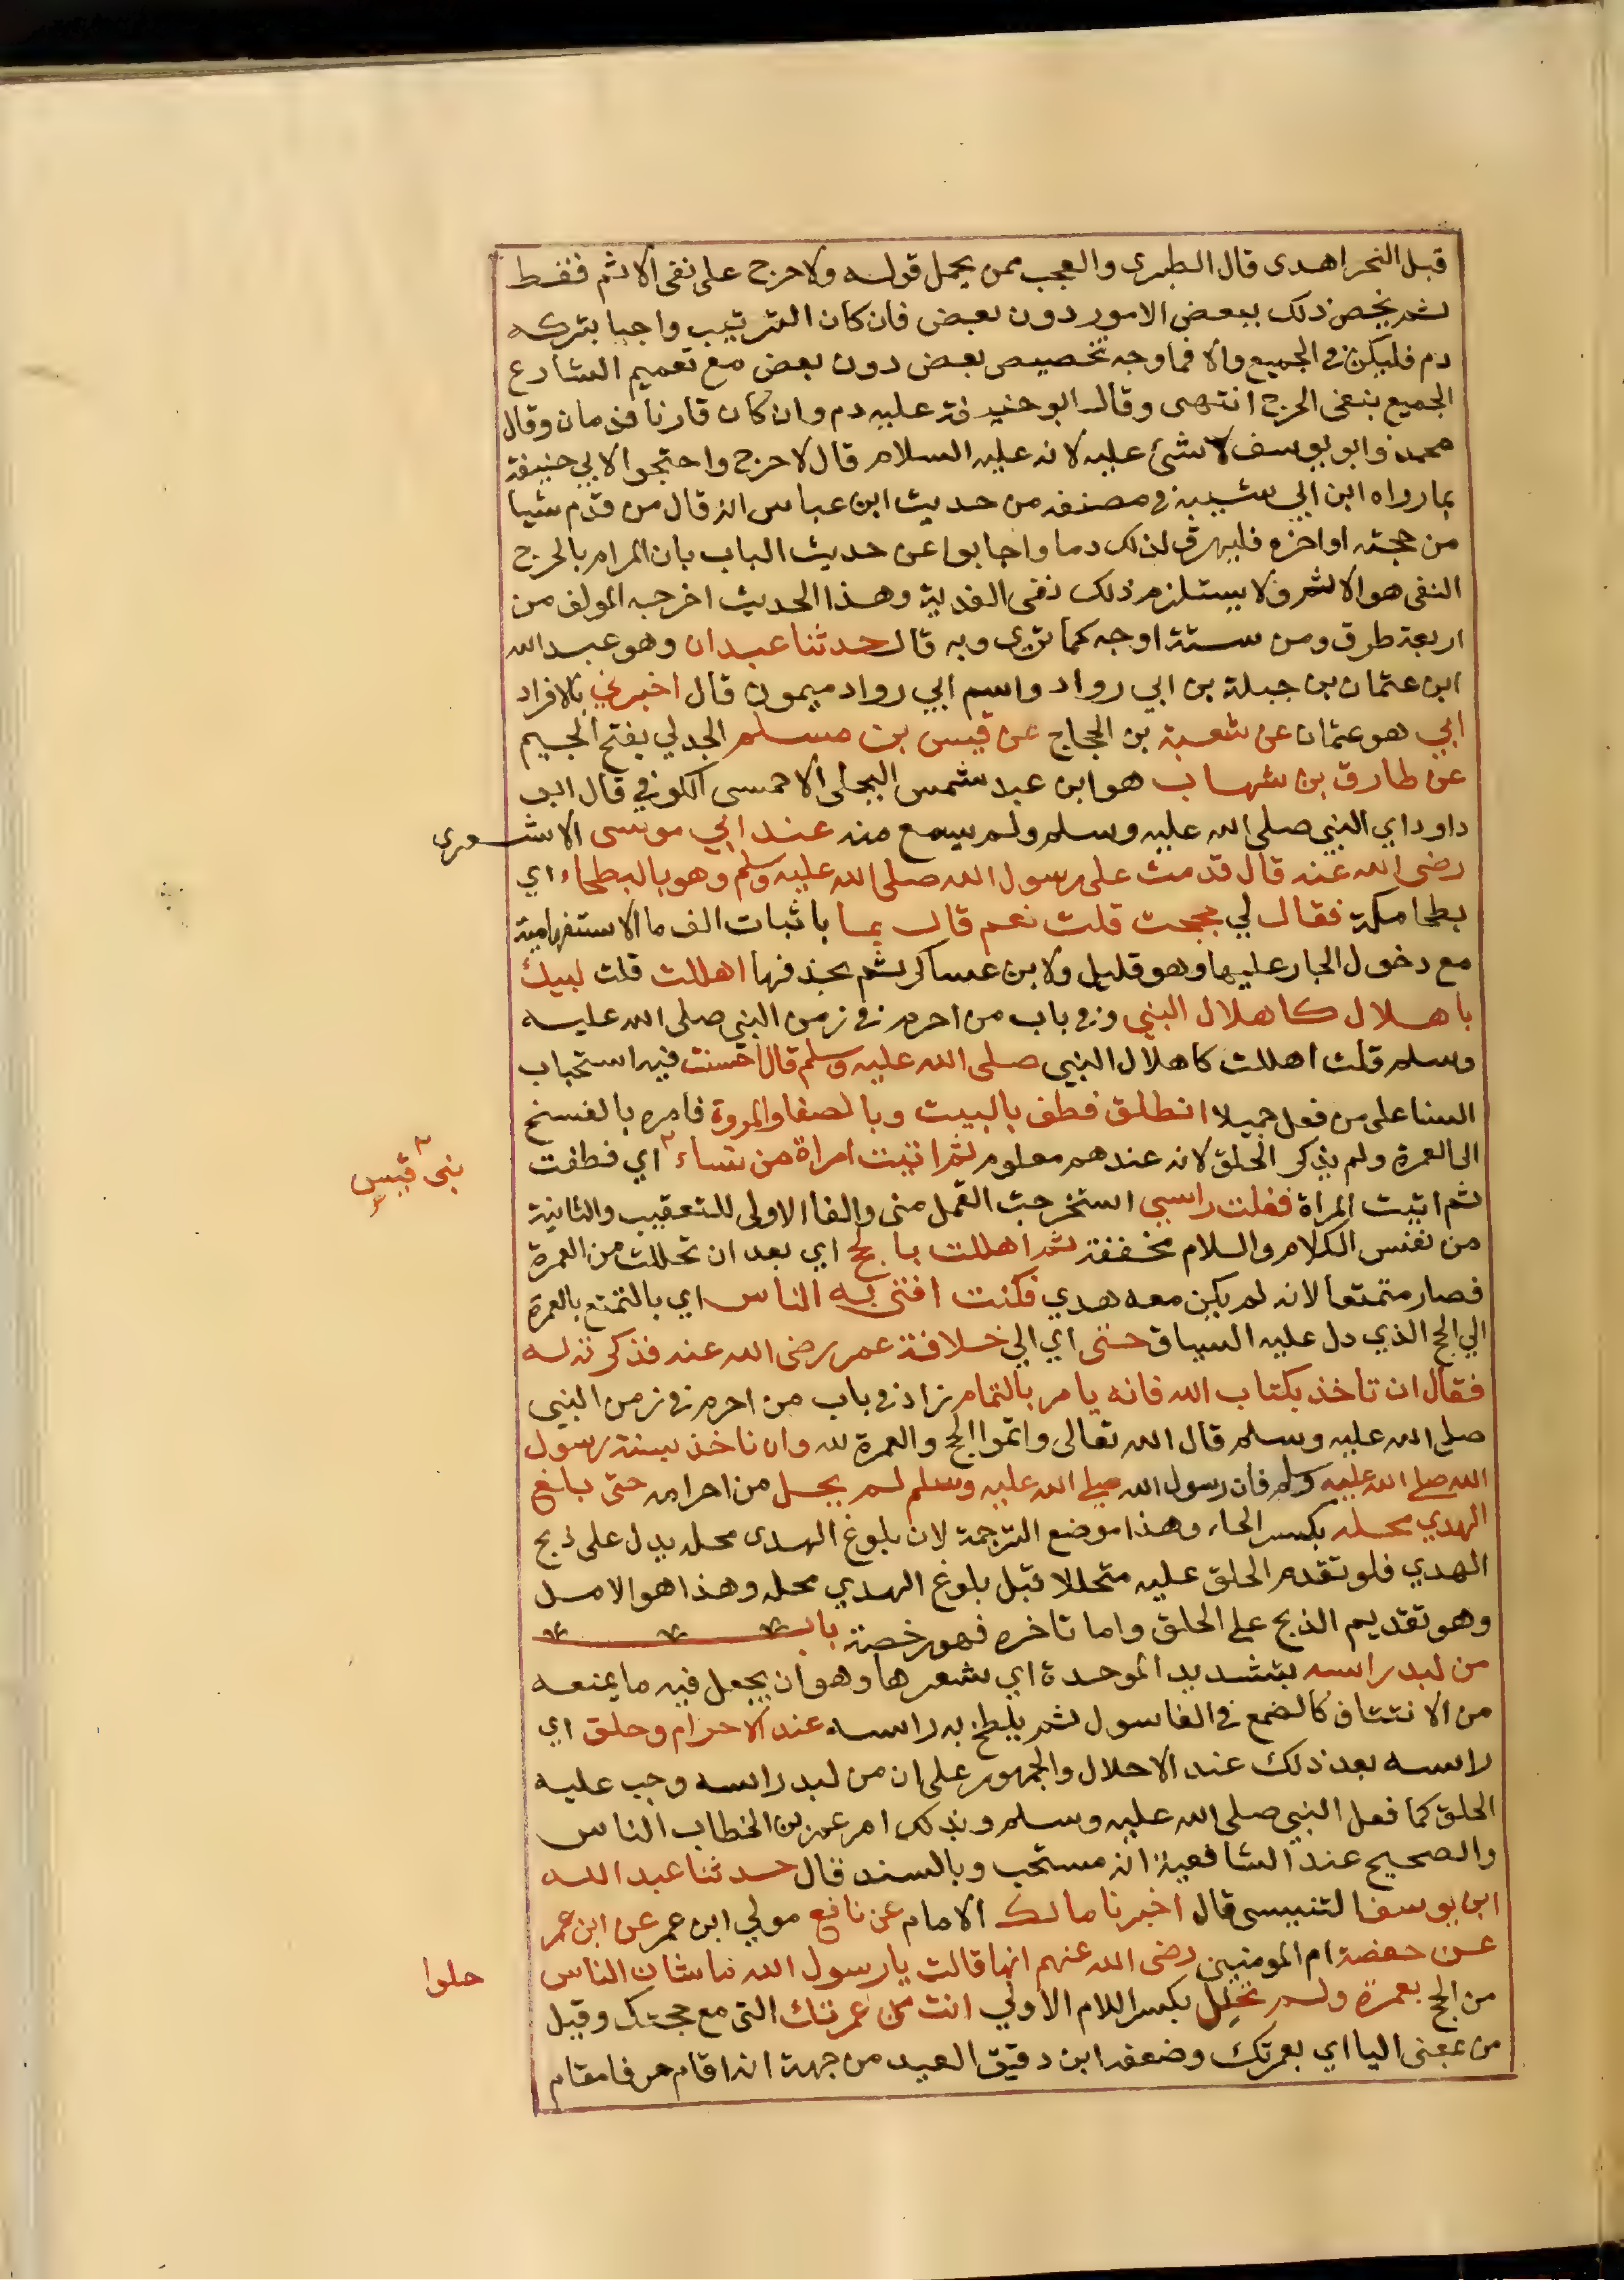 قبل النحر اهدى قال الطبرى والعجب ممن يحمل قوله ولا حرج على نفى الاثم فقط
ثم يخص ذلك ببعض الامور دون بعض فان كان الترتيب واجبا بتركه
دم فليكن فى الجميع والا فما وجه تخصيص بعض دون بعض مع تعميم الشارع
الجميع بنفى الحرج انتهى وقال ابو حنيفة عليه دم وان كان قارنا فدمان وقال
محمد وابو يوسف لا شئ عليه لانه عليه السلام قال لا حرج واحتجوا لابي حنيفة
بما رواه ابن ابي شيبة فى مصنفه من حديث ابن عباس انه قال من قدم شيا
من حجته او اخره فليهرق لذلك دما واجابوا عن حديث الباب بان المراد بالحرج
النفى هو الاثم ولا يستلزم ذلك نفى الفدية وهذا الحديث اخرجه المولف من
اربعة طرق ومن ستة اوجه كما ترى وبه قال حدثنا عبدان وهو عبد الله
ابن عثمان بن جبلة بن ابي رواد واسم ابي رواد ميمون قال اخبرني بالافراد
ابي هو عثمان عن شعبة بن الحجاج عن قيس بن مسلم الجدلي بفتح الجيم
عن طارق بن شهاب هو ابن عبد شمس البجلى الاحمسى الكوفي قال ابو
داود اي النبي صلى الله عليه وسلم ولم يسمع منه عند ابي موسى الاشعرى
رضى الله عنه قال قدمت على رسول الله صلى الله عليه وسلم وهو بالبطحاء اي
بطحا مكة فقال لي حججت قلت نعم قال بما باثبات الف ما الاستفهامية
مع دخول الجار عليها وهو قليل ولابن عساكر بم بحذفها اهللت قلت لبيك
باهلال كاهلال النبي وفى باب من احرم فى زمن النبي صلى الله عليه
وسلم قلت اهللت كاهلال النبي صلى الله عليه وسلم قال احسنت فيه استحباب
الثنا على من فعل جميلا انطلق فطف بالبيت وبالصفا والمروة فامره بالفسخ
الى العمرة ولم يذكر الحلق لانه عندهم معلوم ثم اتيت امراة من نساء اي فطفت
بنى قيس
ثم اتيت المراة ففلت راسي استخرجت القمل منى والفا الاولى للتعقيب والثانية
من نفس الكلام واللام مخففة ثم اهللت بالحج اي بعد ان تحللت من العمرة
فصار متمتعا لانه لم يكن معه هدي فكنت افتى به الناس اي بالتمتع بالعمرة
الي الحج الذي دل عليه السياق حتى اي الي خلافة عمر رضى الله عنه فذكرته له
فقال ان تاخذ بكتاب الله فانه يامر بالتمام زاد فى باب من احرم فى زمن النبي
صلى الله عليه وسلم قال الله تعالى واتموا الحج والعمرة لله وان ناخذ بسنة رسول
الله صلى الله عليه وسلم فان رسول الله صلى الله عليه وسلم لم يحل من احرامه حتى بلغ
الهدي محله بكسر الحاء وهذا موضع الترجمة لان بلوغ الهدى محله يدل على ذبح
الهدي فلو تقدم الحلق عليه متحللا قبل بلوغ الهدي محله وهذا هو الاصل
وهو تقديم الذبح على الحلق واما تاخره فهو رخصة باب
من لبد راسه بتشديد الموحدة اي شعرها وهو ان يجعل فيه ما يمنعه
من الانتتاف كالصمغ في الغاسول ثم يلطخ به راسه عند الاحرام وحلق اي
راسه بعد ذلك عند الاحلال والجمهور على ان من لبد راسه وجب عليه
الحلق كما فعل النبي صلى الله عليه وسلم وبذلك امر عمر بن الخطاب الناس
والصحيح عند الشافعية انه مستحب وبالسند قال حدثنا عبد الله
ابن يوسف التنيسى قال اخبرنا مالك الامام عن نافع مولي ابن عمر عن ابن عمر
عن حفصة ام المومنين رضى الله عنهم انها قالت يا رسول الله ما شان الناس
حلوا
من الحج بعمرة ولم تحلل بكسر اللام الاولي انت من عمرتك التى مع حجتك وقيل
من بمعنى اليا اي بعمرتك وضعفه ابن دقيق العيد من جهة انه اقام حرفا مقام